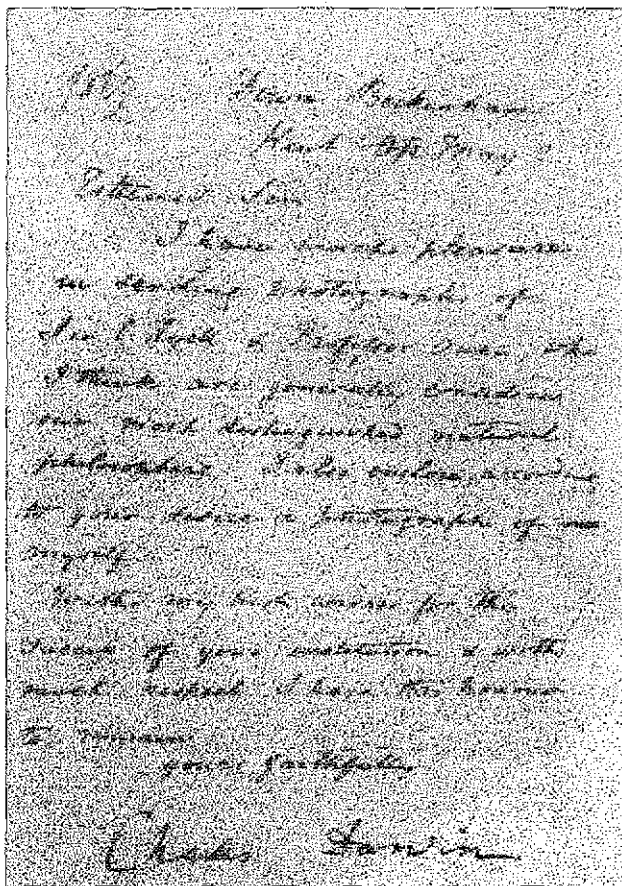 Down Beckenham
Kent
Sir
I have much pleasure
in sending photographs of
Sir C Lyell & Professor Owen, who
I think are generally considered
our most distinguished natural
philosophers I also enclose, according
to your desire a photograph of me
myself
With my best wishes for the
success of your institution & with
much respect I have the honour
to remain
yours faithfully
Charles Darwin